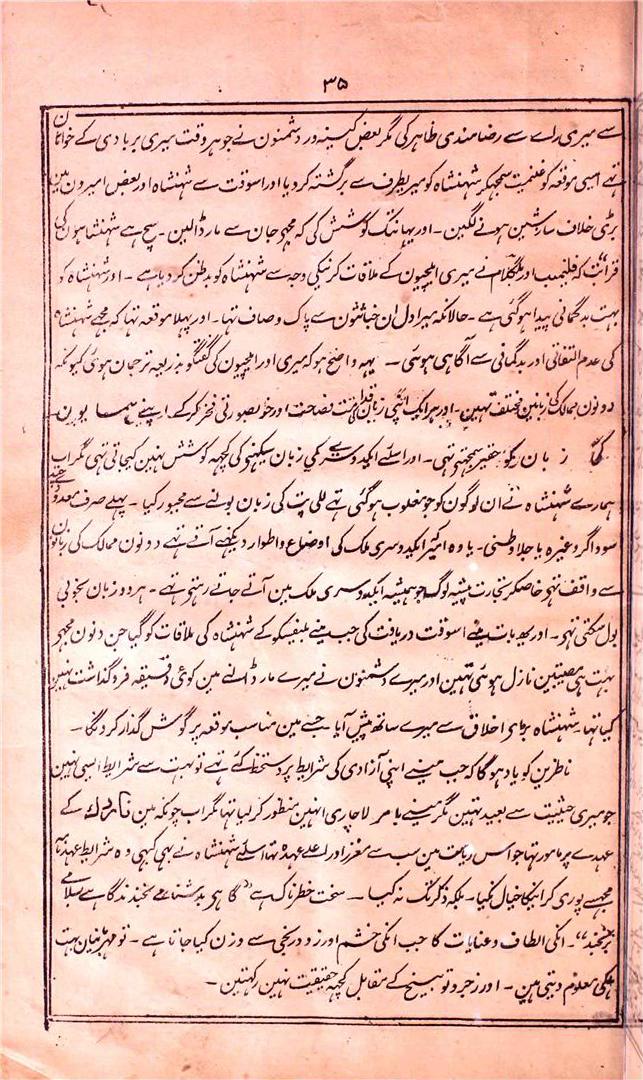 ۳۵
سے میری راے سے رضامندی ظاہر کی مگر بعض کمینہ ور دشمنون نے جو ہر وقت میری بربادی کے خواہان
تہے اسی موقعہ کو غنیمت سمجہکر شہنشاہ کو میریطرف سے برگشتہ کردیا اور اسوقت سے شہنشاہ اور بعض امیرون مین
بڑی خلاف سازشین ہونے لگین ۔ اور یہانتک کوشش کی کہ مجہکو جان سے مار ڈالین ۔ سچ ہے شہنشاہون کی
کہ فلنیپ اور بلگلام نے میری ایلچیون کے ملاقات کرنیکی وجہ سے شہنشاہ کو بدظن کردیا ہے ۔ اور شہنشاہ کو
بہت بدگمانی پیدا ہوگئی ہے ۔ حالانکہ میرا دل ان خباثتون سے پاک و صاف تہا ۔ اور پہلا موقعہ تہا کہ مجہے شہنشاہ
کی عدم التفاتی اور بدگمانی سے آگاہی ہوئی ۔ یہہ واضح ہو کہ میری اور ایلچیون کی گفتگو بذریعہ ترجمان ہوئی کیونکہ
دونون ممالک کی زبانین مختلف تہین ۔ اور ہر ایک اپنی زبان قدامت فصاحت اور خوبصورتی فخر کرکے اپنے ہمسایون
کی زبان کو حقیر سمجہتی تہی ۔ اور اسلئے ایکدوسرے کی زبان سیکہنے کی کچہہ کوشش نہین کیجاتی تہی مگر اب
ہمارے شہنشاہ نے ان لوگون کو جو مغلوب ہوگئی تہے للی پت کی زبان بولنے سے مجبور کیا ۔ پہلے صرف معدودے
سوداگر وغیرہ یا جلاوطنی ۔ یا وہ امیر ایکدوسری ملک کی اوضاع و اطوار دیکہنے آتے تہے دونون ممالک کی زبانون
سے واقف تہی خاصکر تجارت پیشہ لوگ جو ہمیشہ ایکدوسری ملک مین آتے جاتے رہتی تہے ۔ ہر دو زبان بخوبی
بول سکتی تہی ۔ اور یہہ بات مینے اسوقت دریافت کی جب مینے بلیفسکو کے شہنشاہ کی ملاقات کو گیا جن دنون مجہپر
بہت ہی مصیبتین نازل ہوئی تہین اور میرے دشمنون نے میرے مار ڈالنے مین کوئی دقیقہ فروگذاشت نہین
کیا تہا ۔ شہنشاہ بڑی اخلاق سے میرے ساتھ پیش آیا ۔ جسے مین مناسب موقعہ پر گوش گذار کرونگا ۔
ناظرین کو یاد ہوگا کہ جب مینے اپنی آزادی کی شرایط پر دستخط کئے تہے تو بہت سے شرایط ایسی تہین
جو میری حیثیت سے بعید تہین مگر مینے بامر لاچاری انہین منظور کرلیا تہا مگر اب چونکہ مین ناردک کے
عہدے پر مامور تہا جو اس ریاست مین سب سے معزز اور اعلے عہدہ تہا اسلئے شہنشاہ نے بہی کبہی وہ شرایط عہدنامہ
مجہسے پوری کرانیکا خیال نکیا ۔ بلکہ ذکر تک نہ کیا ۔ سخت خطرناک ہے ”گاہی بدشنامے بخندند گاہے بسلامی
برنجند“ ۔ انکی الطاف و عنایات کا جب انکی خشم اور زودرنجی سے وزن کیا جاتا ہے ۔ تو مہربانیان بہت
ہلکی معلوم دیتی ہین ۔ اور زجر و توبیخ کے مقابل کچہہ حقیقت نہین رکہتین ۔